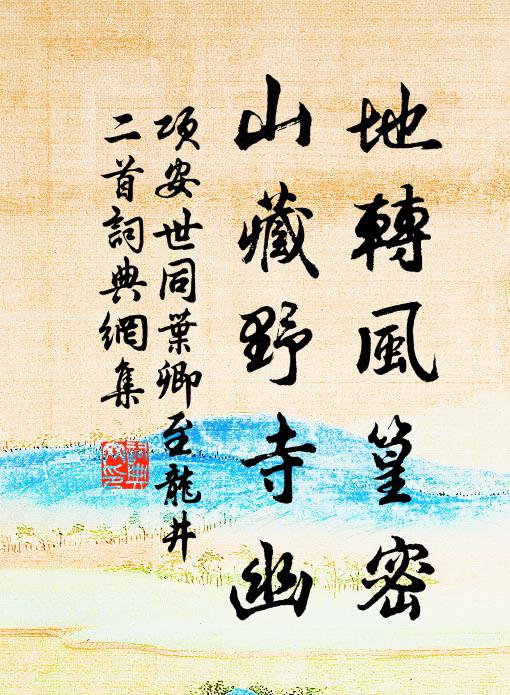 地轉風篁密
山藏野寺幽
項安世同葉卿至龍井
二首詞典網集